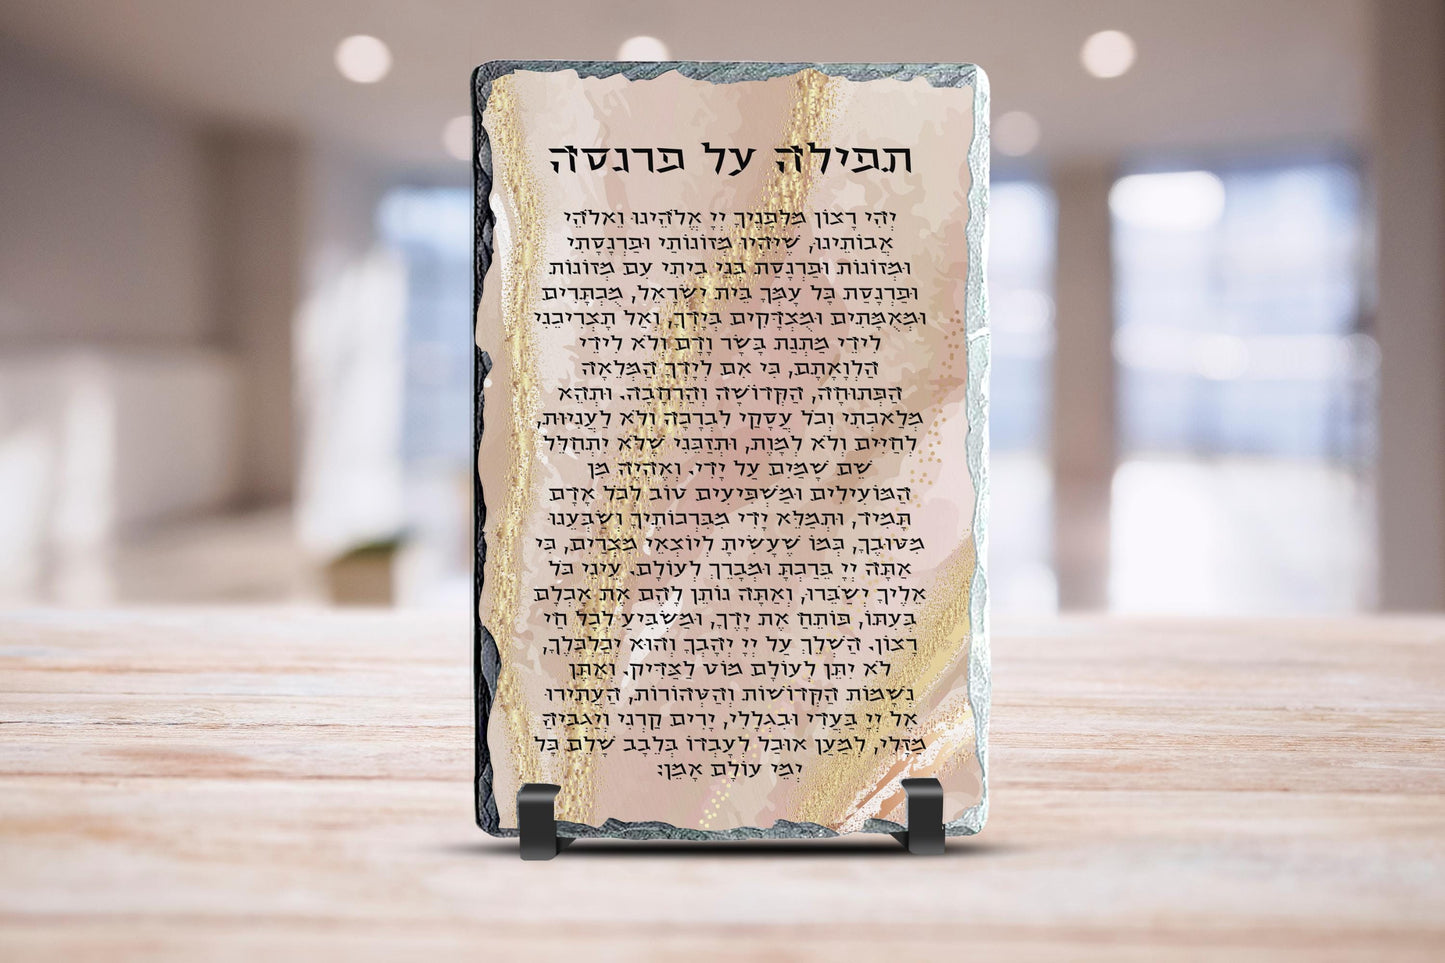 תפילה על פרנסה
יְהִי רָצוֹן מִלְּפָנֶיךָ יְיָ אֱלֹהֵינוּ וֵאלֹהֵי
אֲבוֹתֵינוּ, שֶׁיִּהְיוּ מְזוֹנוֹתַי וּפַרְנָסָתִי
וּמְזוֹנוֹת וּפַרְנָסַת בְּנֵי בֵיתִי עִם מְזוֹנוֹת
וּפַרְנָסַת כָּל עַמְּךָ בֵּית יִשְׂרָאֵל, מֻכְתָּרִים
וּמְאֻמָּתִים וּמֻצְדָּקִים בְּיָדֶךָ, וְאַל תַּצְרִיכֵנִי
לִידֵי מַתְּנַת בָּשָׂר וָדָם וְלֹא לִידֵי
הַלְוָאָתָם, כִּי אִם לְיָדְךָ הַמְּלֵאָה
הַפְּתוּחָה, הַקְּדוֹשָׁה וְהָרְחָבָה. וּתְהֵא
מְלַאכְתִּי וְכֹל עֲסָקַי לִבְרָכָה וְלֹא לַעֲנִיּוּת,
לְחַיִּים וְלֹא לְמָוֶת, וּתְזַכֵּנִי שֶׁלֹּא יִתְחַלֵּל
שֵׁם שָׁמַיִם עַל יָדִי. וְאֶהְיֶה מִן
הַמּוֹעִילִים וּמַשְׁפִּיעִים טוֹב לְכֹל אָדָם
תָּמִיד, וּתְמַלֵּא יָדַי מִבִּרְכוֹתֶיךָ וְשַׂבְּעֵנוּ
מִטּוּבֶךָ, כְּמוֹ שֶׁעָשִׂיתָ לְיוֹצְאֵי מִצְרַיִם, כִּי
אַתָּה יְיָ בֵּרַכְתָּ וּמְבָרֵךְ לְעוֹלָם. עֵינֵי כֹל
אֵלֶיךָ יְשַׂבֵּרוּ, וְאַתָּה נוֹתֵן לָהֶם אֶת אָכְלָם
בְּעִתּוֹ, פּוֹתֵחַ אֶת יָדֶךָ, וּמַשְׂבִּיעַ לְכָל חַי
רָצוֹן. הַשְׁלֵךְ עַל יְיָ יְהָבְךָ וְהוּא יְכַלְכְּלֶךָ,
לֹא יִתֵּן לְעוֹלָם מוֹט לַצַּדִּיק. וְאַתֵּן
נְשָׁמוֹת הַקְּדוֹשׁוֹת וְהַטְּהוֹרוֹת, הַעְתִּירוּ
אֶל יְיָ בַּעֲדִי וּבִגְלָלִי, יָרִים קַרְנִי וְיַגְבִּיהַּ
מַזָּלִי, לְמַעַן אוּכַל לְעָבְדוֹ בְּלֵבָב שָׁלֵם כָּל
יְמֵי עוֹלָם אָמֵן: